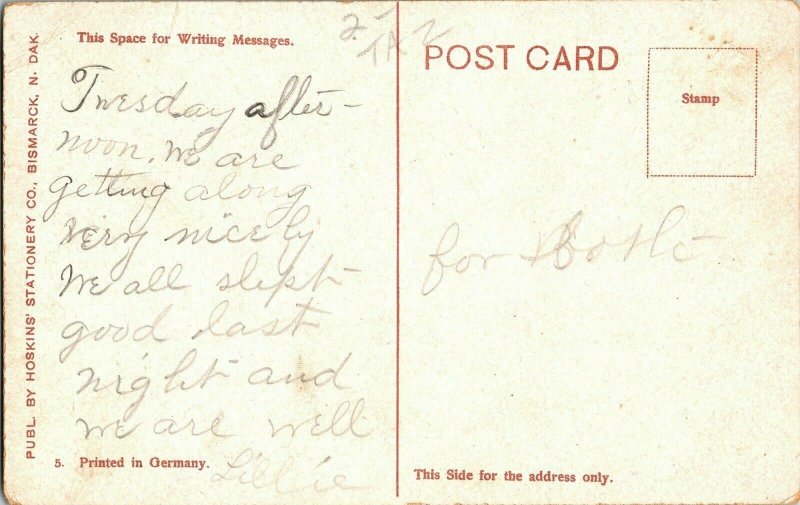 This Space for Writing Messages.
Tuesday after-
noon. We are
getting along
very nicely
We all slept
good last
night and
we are well
Lillie
5. Printed in Germany.
PUBL. BY HOSKINS' STATIONERY CO., BISMARCK, N. DAK.
POST CARD
Stamp
for
This Side for the address only.